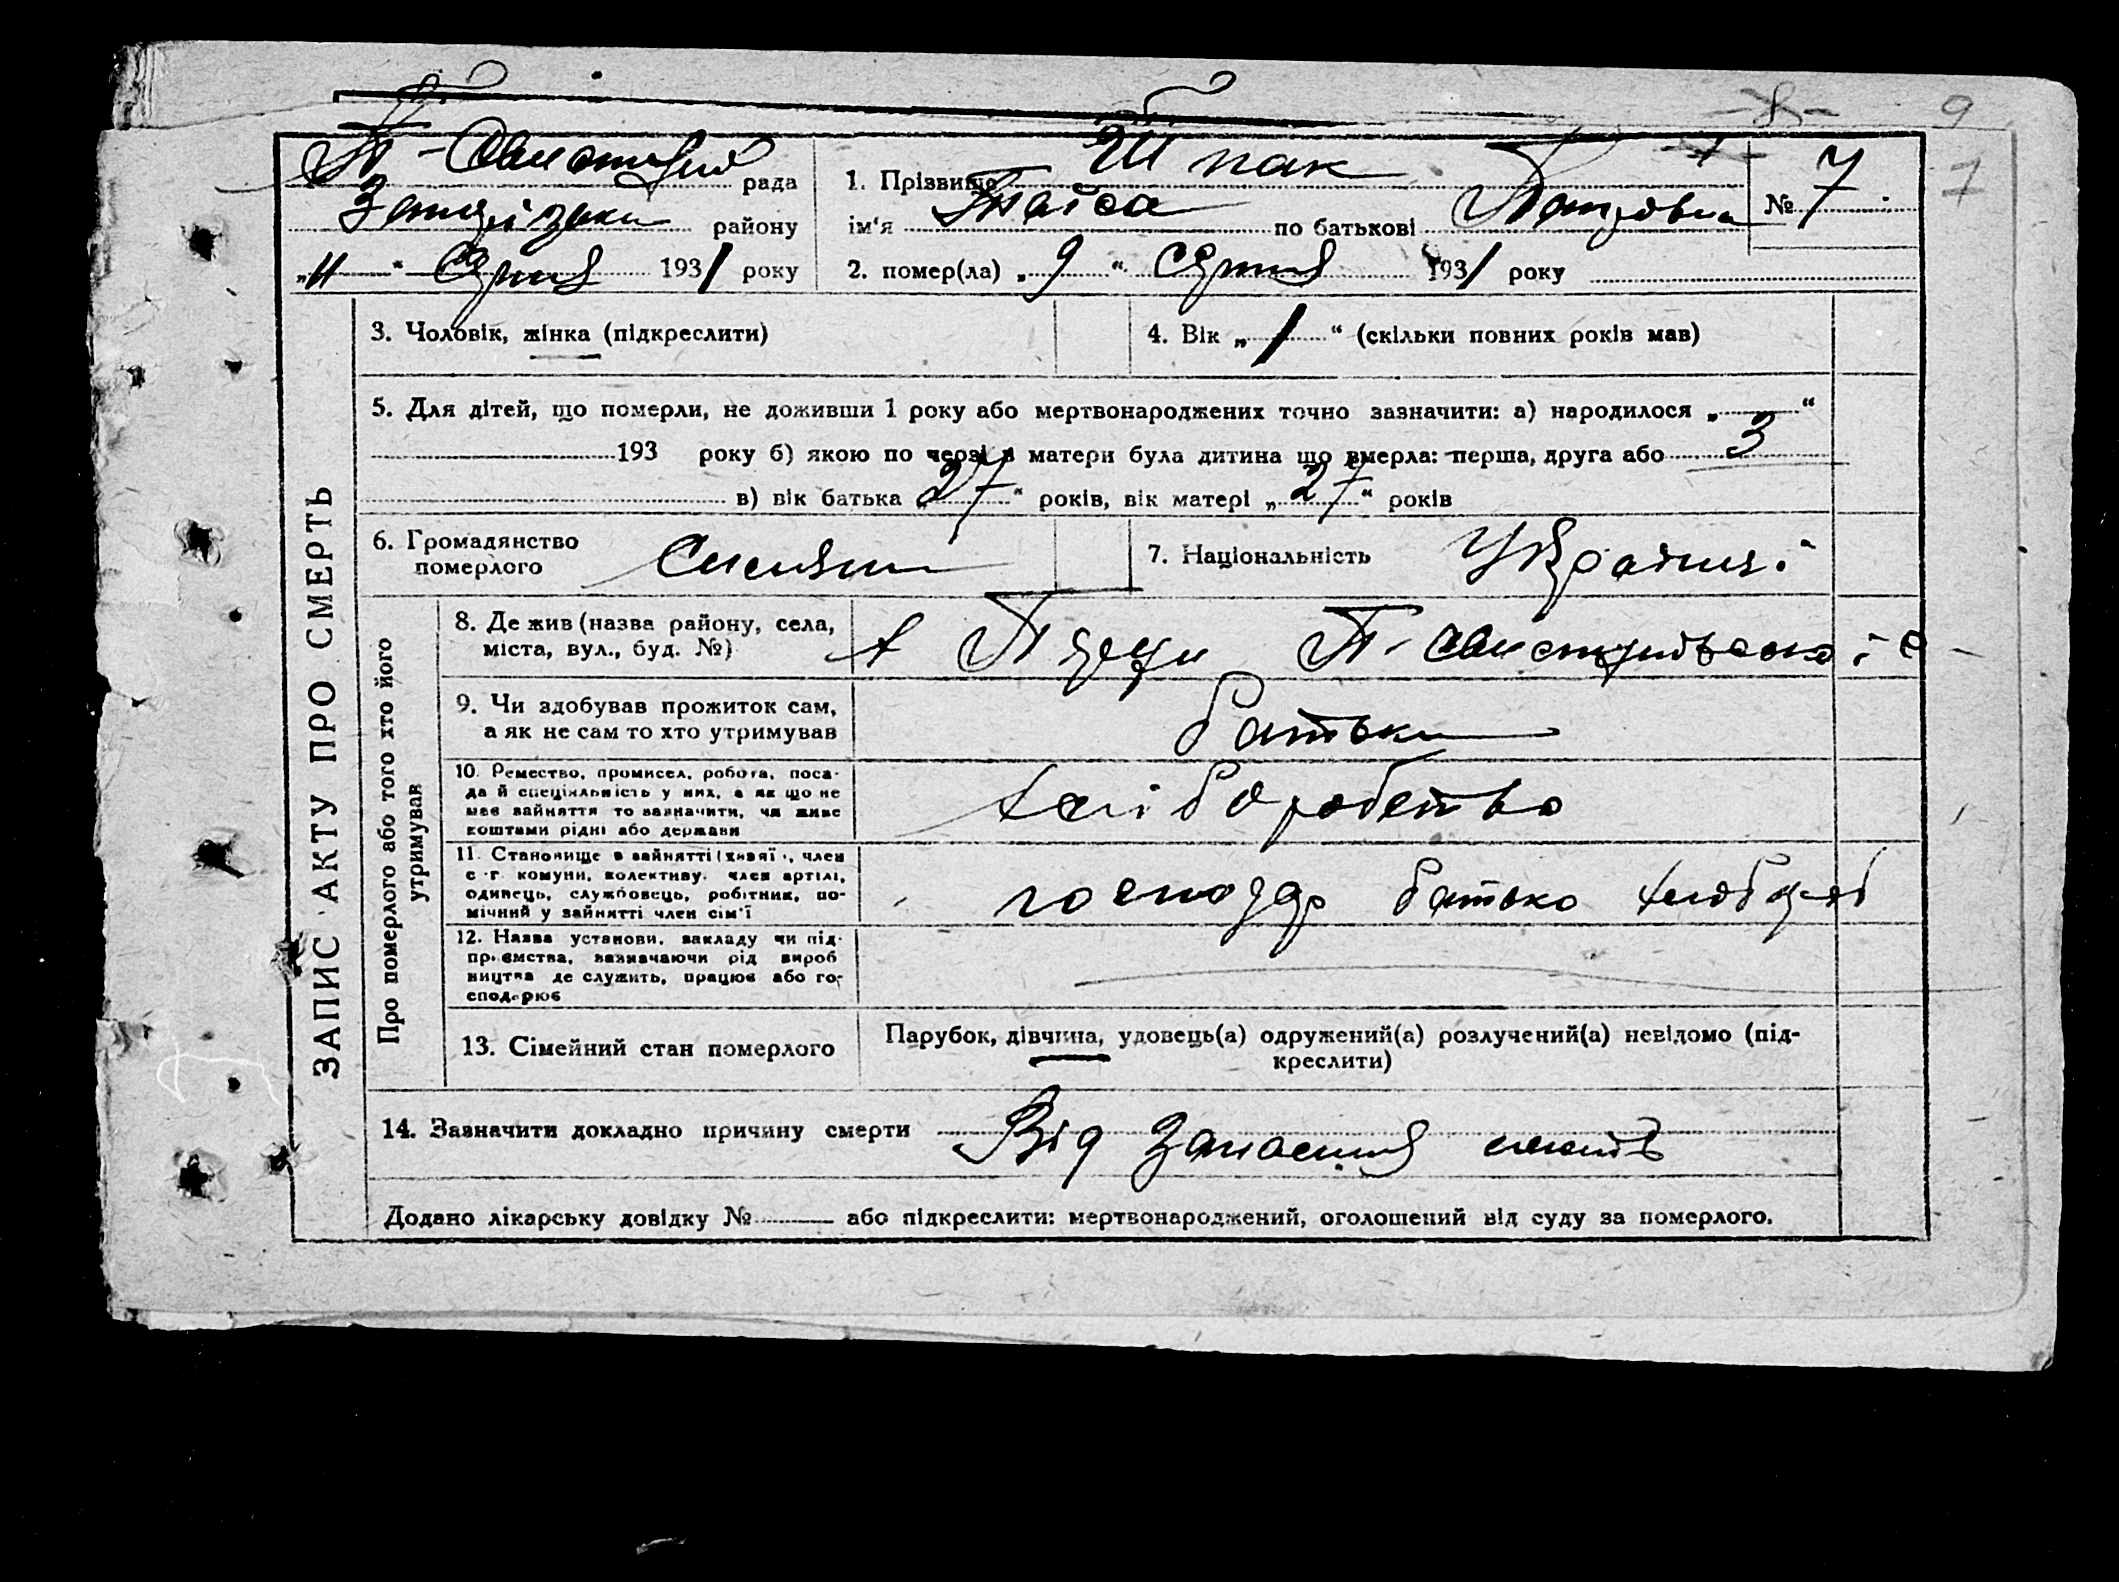 8 9
рада
1. Прізвище Шпак
№ 7
7
району
ім'я Таїса по батькові
„11" Серпня 1931 року
2. помер(ла) „9" Серпня 1931 року
ЗАПИС АКТУ ПРО СМЕРТЬ
3. Чоловік, жінка (підкреслити)
4. Вік „1" (скільки повних років мав)
5. Для дітей, що померли, не доживши 1 року або мертвонароджених точно зазначити: а) народилося „ "
193 року б) якою по черзі в матери була дитина що вмерла: перша, друга або 3
в) вік батька „27" років, вік матері „27" років
6. Громадянство
померлого
7. Національність
Про померлого або того хто його
утримував
8. Де жив (назва району, села,
міста, вул., буд. №)
9. Чи здобував прожиток сам,
а як не сам то хто утримував
Батьки
10. Ремество, промисел, робота, поса-
да й спеціяльність у них, а як що не
має зайняття то зазначити, чи живе
коштами рідні або держави
хліборобство
11. Становище в зайнятті (хазяї , член
с.-г. комуни, колективу, член артілі,
одинець, службовець, робітник, по-
мічний у зайнятті член сім'ї
господар батько хлібороб
12. Назва установи, закладу чи під-
приємства, зазначаючи рід вироб
ництва де служить, працює або го-
сподарює
13. Сімейний стан померлого
Парубок, дівчина, удовець(а) одружений(а) розлучений(а) невідомо (під-
креслити)
14. Зазначити докладно причину смерти Від Запаління
Додано лікарську довідку № або підкреслити: мертвонароджений, оголошений від суду за померлого.